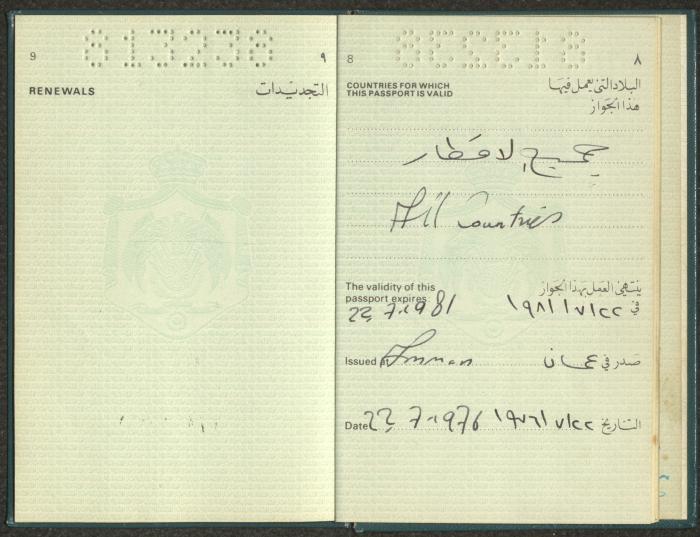 9
٩
RENEWALS
التجديدات
8
٨
COUNTRIES FOR WHICH
THIS PASSPORT IS VALID
البلاد التي يعمل فيها
هذا الجواز
جميع الاقطار
All Countries
The validity of this
passport expires:
22. 7. 1981
ينتهي العمل بهذا الجواز
في ٢٢/٧/١٩٨١
Issued at Amman
صدر في عمان
Date 22. 7. 1976
التاريخ ٢٢/٧/١٩٧٦